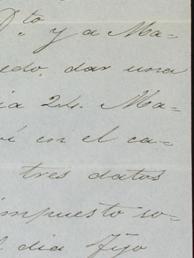 Dto y á Ma=
edo, dar una
ia 24. Ma=
í en el ca=
tres datos
impuesto so=
l dia fijo